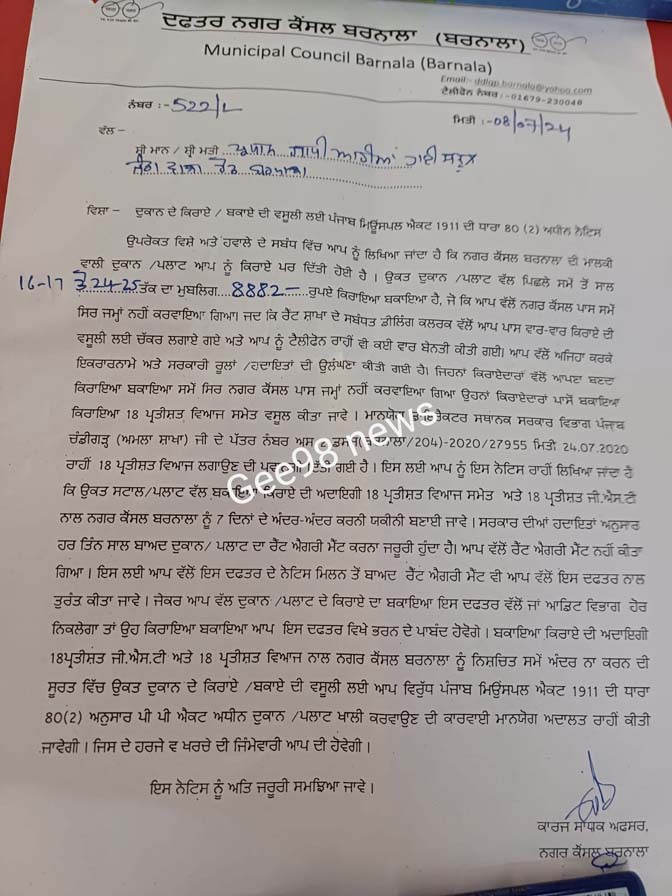 ਦਫਤਰ ਨਗਰ ਕੌਂਸਲ ਬਰਨਾਲਾ (ਬਰਨਾਲਾ)
Municipal Council Barnala (Barnala)
Email:- ddlgp.barnala@yahoo.com
ਟੈਲੀਫੋਨ ਨੰਬਰ:-01679-230048
ਨੰਬਰ :- 522/L
ਮਿਤੀ :- 08/07/24
ਵੱਲ –
ਸ਼੍ਰੀ ਮਾਨ / ਸ਼੍ਰੀ ਮਤੀ ਗਾਂਧੀ ਆਰੀਆ ਹਾਈ ਸਕੂਲ
ਰੋਡ ਬਰਨਾਲਾ
ਵਿਸ਼ਾ – ਦੁਕਾਨ ਦੇ ਕਿਰਾਏ / ਬਕਾਏ ਦੀ ਵਸੂਲੀ ਲਈ ਪੰਜਾਬ ਮਿਊਂਸਪਲ ਐਕਟ 1911 ਦੀ ਧਾਰਾ 80 (2) ਅਧੀਨ ਨੋਟਿਸ
ਉਪਰੋਕਤ ਵਿਸ਼ੇ ਅਤੇ ਹਵਾਲੇ ਦੇ ਸਬੰਧ ਵਿੱਚ ਆਪ ਨੂੰ ਲਿਖਿਆ ਜਾਂਦਾ ਹੈ ਕਿ ਨਗਰ ਕੌਂਸਲ ਬਰਨਾਲਾ ਦੀ ਮਾਲਕੀ
ਵਾਲੀ ਦੁਕਾਨ /ਪਲਾਟ ਆਪ ਨੂੰ ਕਿਰਾਏ ਪਰ ਦਿੱਤੀ ਹੋਈ ਹੈ । ਉਕਤ ਦੁਕਾਨ /ਪਲਾਟ ਵੱਲ ਪਿਛਲੇ ਸਮੇਂ ਤੋਂ ਸਾਲ
16-17 ਤੋਂ 24-25 ਤੱਕ ਦਾ ਮੁਬਲਿਗ 8882- ਰੁਪਏ ਕਿਰਾਇਆ ਬਕਾਇਆ ਹੈ, ਜੋ ਕਿ ਆਪ ਵੱਲੋਂ ਨਗਰ ਕੌਂਸਲ ਪਾਸ ਸਮੇਂ
ਸਿਰ ਜਮ੍ਹਾਂ ਨਹੀਂ ਕਰਵਾਇਆ ਗਿਆ। ਜਦ ਕਿ ਰੈਂਟ ਸ਼ਾਖਾ ਦੇ ਸਬੰਧਤ ਡੀਲਿੰਗ ਕਲਰਕ ਵੱਲੋਂ ਆਪ ਪਾਸ ਵਾਰ-ਵਾਰ ਕਿਰਾਏ ਦੀ
ਵਸੂਲੀ ਲਈ ਚੱਕਰ ਲਗਾਏ ਗਏ ਅਤੇ ਆਪ ਨੂੰ ਟੈਲੀਫੋਨ ਰਾਹੀਂ ਵੀ ਕਈ ਵਾਰ ਬੇਨਤੀ ਕੀਤੀ ਗਈ। ਆਪ ਵੱਲੋਂ ਅਜਿਹਾ ਕਰਕੇ
ਇਕਰਾਰਨਾਮੇ ਅਤੇ ਸਰਕਾਰੀ ਰੂਲਾਂ /ਹਦਾਇਤਾਂ ਦੀ ਉਲੰਘਣਾ ਕੀਤੀ ਗਈ ਹੈ। ਜਿਹਨਾਂ ਕਿਰਾਏਦਾਰਾਂ ਵੱਲੋਂ ਆਪਣਾ ਬਣਦਾ
ਕਿਰਾਇਆ ਬਕਾਇਆ ਸਮੇਂ ਸਿਰ ਨਗਰ ਕੌਂਸਲ ਪਾਸ ਜਮ੍ਹਾਂ ਨਹੀਂ ਕਰਵਾਇਆ ਗਿਆ ਉਹਨਾਂ ਕਿਰਾਏਦਾਰਾਂ ਪਾਸੋਂ ਬਕਾਇਆ
ਕਿਰਾਇਆ 18 ਪ੍ਰਤੀਸ਼ਤ ਵਿਆਜ ਸਮੇਤ ਵਸੂਲ ਕੀਤਾ ਜਾਵੇ । ਮਾਨਯੋਗ ਡਾਇਰੈਕਟਰ ਸਥਾਨਕ ਸਰਕਾਰ ਵਿਭਾਗ ਪੰਜਾਬ
ਚੰਡੀਗੜ੍ਹ (ਅਮਲਾ ਸ਼ਾਖਾ) ਜੀ ਦੇ ਪੱਤਰ ਨੰਬਰ ਅਸ /204)-2020/27955 ਮਿਤੀ 24.07.2020
ਰਾਹੀਂ 18 ਪ੍ਰਤੀਸ਼ਤ ਵਿਆਜ ਲਗਾਉਣ ਦੀ ਦਿੱਤੀ ਗਈ ਹੈ । ਇਸ ਲਈ ਆਪ ਨੂੰ ਇਸ ਨੋਟਿਸ ਰਾਹੀਂ ਲਿਖਿਆ ਜਾਂਦਾ ਹੈ
ਕਿ ਉਕਤ ਸਟਾਲ/ਪਲਾਟ ਵੱਲ ਬਕਾਇਆ ਕਿਰਾਏ ਦੀ ਅਦਾਇਗੀ 18 ਪ੍ਰਤੀਸ਼ਤ ਵਿਆਜ ਸਮੇਤ ਅਤੇ 18 ਪ੍ਰਤੀਸ਼ਤ ਜੀ.ਐਸ.ਟੀ
ਨਾਲ ਨਗਰ ਕੌਂਸਲ ਬਰਨਾਲਾ ਨੂੰ 7 ਦਿਨਾਂ ਦੇ ਅੰਦਰ-ਅੰਦਰ ਕਰਨੀ ਯਕੀਨੀ ਬਣਾਈ ਜਾਵੇ । ਸਰਕਾਰ ਦੀਆਂ ਹਦਾਇਤਾਂ ਅਨੁਸਾਰ
ਹਰ ਤਿੰਨ ਸਾਲ ਬਾਅਦ ਦੁਕਾਨ/ ਪਲਾਟ ਦਾ ਰੈਂਟ ਐਗਰੀ ਮੈਂਟ ਕਰਨਾ ਜਰੂਰੀ ਹੁੰਦਾ ਹੈ। ਆਪ ਵੱਲੋਂ ਰੈਂਟ ਐਗਰੀ ਮੈਂਟ ਨਹੀਂ ਕੀਤਾ
ਗਿਆ । ਇਸ ਲਈ ਆਪ ਵੱਲੋਂ ਇਸ ਦਫਤਰ ਦੇ ਨੋਟਿਸ ਮਿਲਨ ਤੋਂ ਬਾਅਦ ਰੈਂਟ ਐਗਰੀ ਮੈਂਟ ਵੀ ਆਪ ਵੱਲੋਂ ਇਸ ਦਫਤਰ ਨਾਲ
ਤੁਰੰਤ ਕੀਤਾ ਜਾਵੇ । ਜੇਕਰ ਆਪ ਵੱਲ ਦੁਕਾਨ /ਪਲਾਟ ਦੇ ਕਿਰਾਏ ਦਾ ਬਕਾਇਆ ਇਸ ਦਫਤਰ ਵੱਲੋਂ ਜਾਂ ਆਡਿਟ ਵਿਭਾਗ ਹੋਰ
ਨਿਕਲੇਗਾ ਤਾਂ ਉਹ ਕਿਰਾਇਆ ਬਕਾਇਆ ਆਪ ਇਸ ਦਫਤਰ ਵਿਖੇ ਭਰਨ ਦੇ ਪਾਬੰਦ ਹੋਵੋਗੇ । ਬਕਾਇਆ ਕਿਰਾਏ ਦੀ ਅਦਾਇਗੀ
18ਪ੍ਰਤੀਸ਼ਤ ਜੀ.ਐਸ.ਟੀ ਅਤੇ 18 ਪ੍ਰਤੀਸ਼ਤ ਵਿਆਜ ਨਾਲ ਨਗਰ ਕੌਂਸਲ ਬਰਨਾਲਾ ਨੂੰ ਨਿਸ਼ਚਿਤ ਸਮੇਂ ਅੰਦਰ ਨਾ ਕਰਨ ਦੀ
ਸੂਰਤ ਵਿੱਚ ਉਕਤ ਦੁਕਾਨ ਦੇ ਕਿਰਾਏ /ਬਕਾਏ ਦੀ ਵਸੂਲੀ ਲਈ ਆਪ ਵਿਰੁੱਧ ਪੰਜਾਬ ਮਿਊਂਸਪਲ ਐਕਟ 1911 ਦੀ ਧਾਰਾ
80(2) ਅਨੁਸਾਰ ਪੀ ਪੀ ਐਕਟ ਅਧੀਨ ਦੁਕਾਨ /ਪਲਾਟ ਖਾਲੀ ਕਰਵਾਉਣ ਦੀ ਕਾਰਵਾਈ ਮਾਨਯੋਗ ਅਦਾਲਤ ਰਾਹੀਂ ਕੀਤੀ
ਜਾਵੇਗੀ । ਜਿਸ ਦੇ ਹਰਜੇ ਵ ਖਰਚੇ ਦੀ ਜਿੰਮੇਵਾਰੀ ਆਪ ਦੀ ਹੋਵੇਗੀ ।
ਇਸ ਨੋਟਿਸ ਨੂੰ ਅਤਿ ਜਰੂਰੀ ਸਮਝਿਆ ਜਾਵੇ ।
ਕਾਰਜ ਸਾਧਕ ਅਫਸਰ,
ਨਗਰ ਕੌਂਸਲ ਬਰਨਾਲਾ
Gee98 news